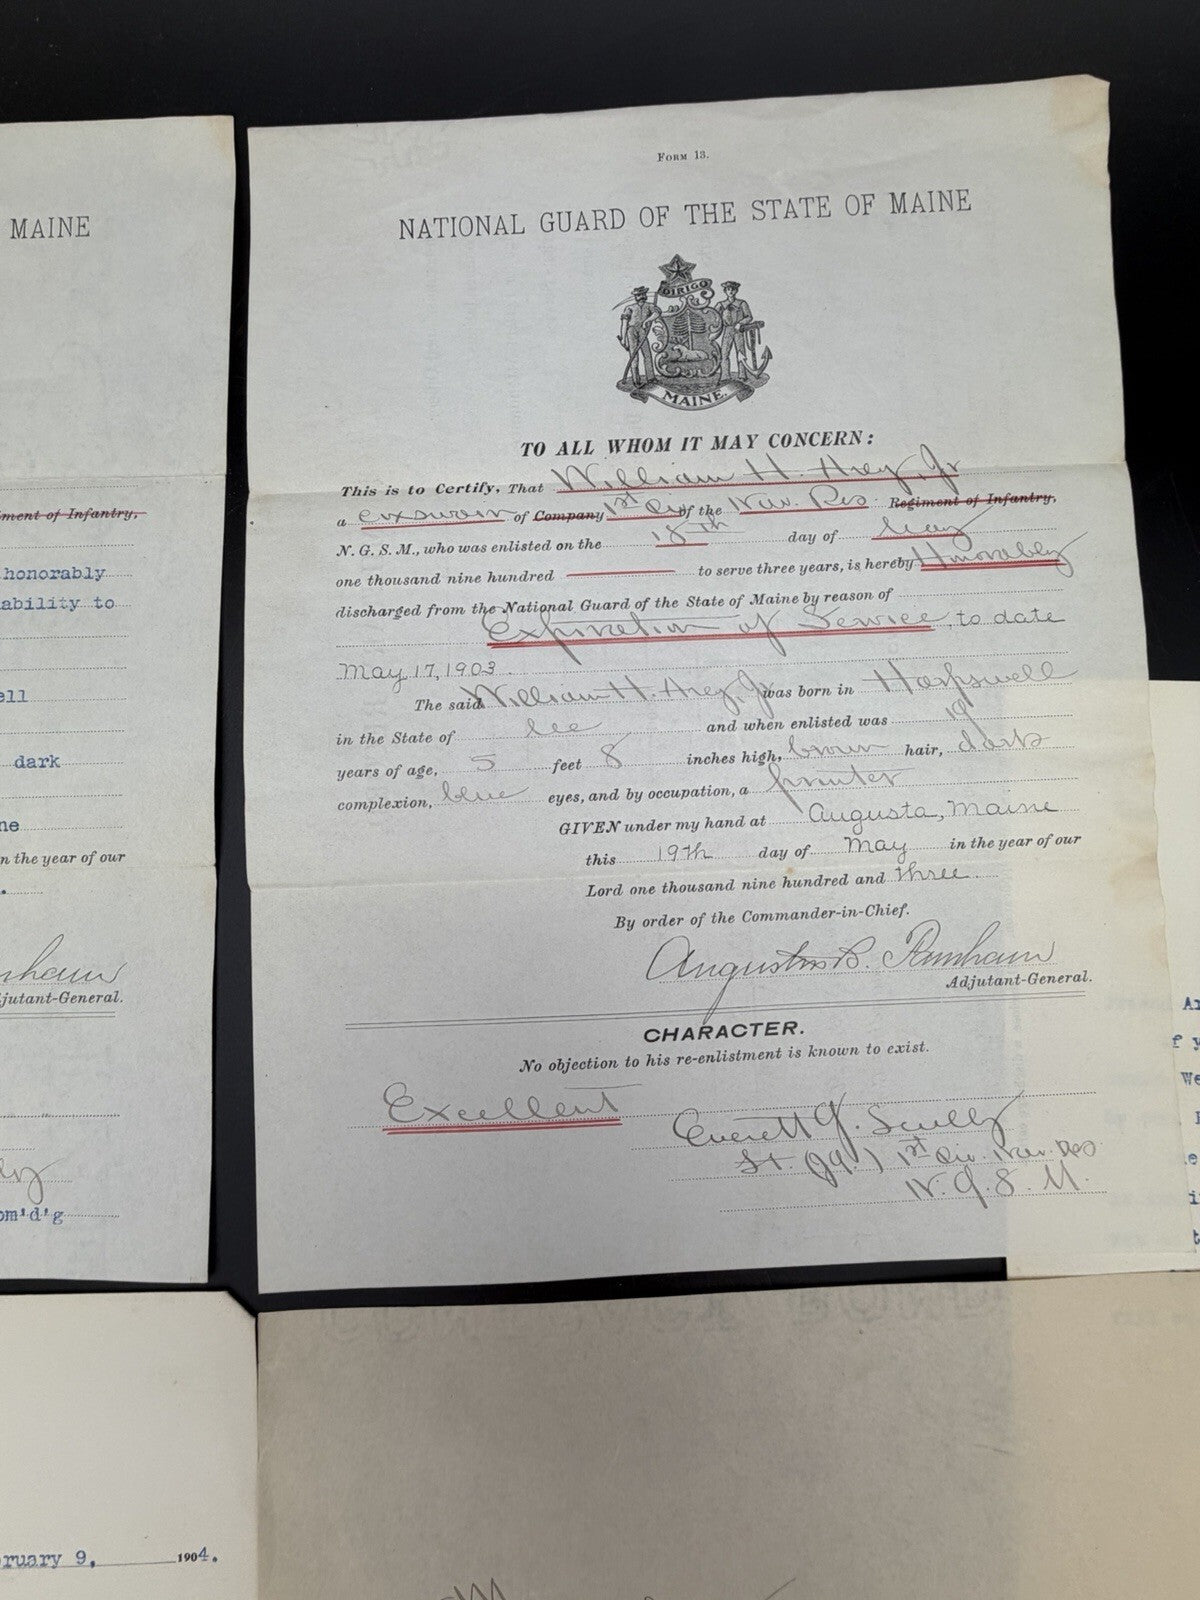 MAINE
ment of Infantry,
honorably
ability to
ell
dark
ne
n the year of our
nham
djutant-General.
om'd'g
ruary 9, 1904.
Form 13.
NATIONAL GUARD OF THE STATE OF MAINE
DIRIGO
MAINE
TO ALL WHOM IT MAY CONCERN:
This is to Certify, That William H. Arey, Jr
a coxswain of Company 1st Div of the Nav. Res Regiment of Infantry,
N. G. S. M., who was enlisted on the 18th day of May
one thousand nine hundred to serve three years, is hereby Honorably
discharged from the National Guard of the State of Maine by reason of
Expiration of Service, to date
May 17, 1903.
The said William H. Arey, Jr was born in Harpswell
in the State of Me and when enlisted was 19
years of age, 5 feet 8 inches high, brown hair, dark
complexion, blue eyes, and by occupation, a printer
GIVEN under my hand at Augusta, Maine
this 19th day of May in the year of our
Lord one thousand nine hundred and three.
By order of the Commander-in-Chief.
Augustus B. Farnham
Adjutant-General.
CHARACTER.
No objection to his re-enlistment is known to exist.
Excellent
Everett G. Scully
Lt. (Jg.) 1st Div. Nav. Res
N. G. S. M.
Ar
f y
We